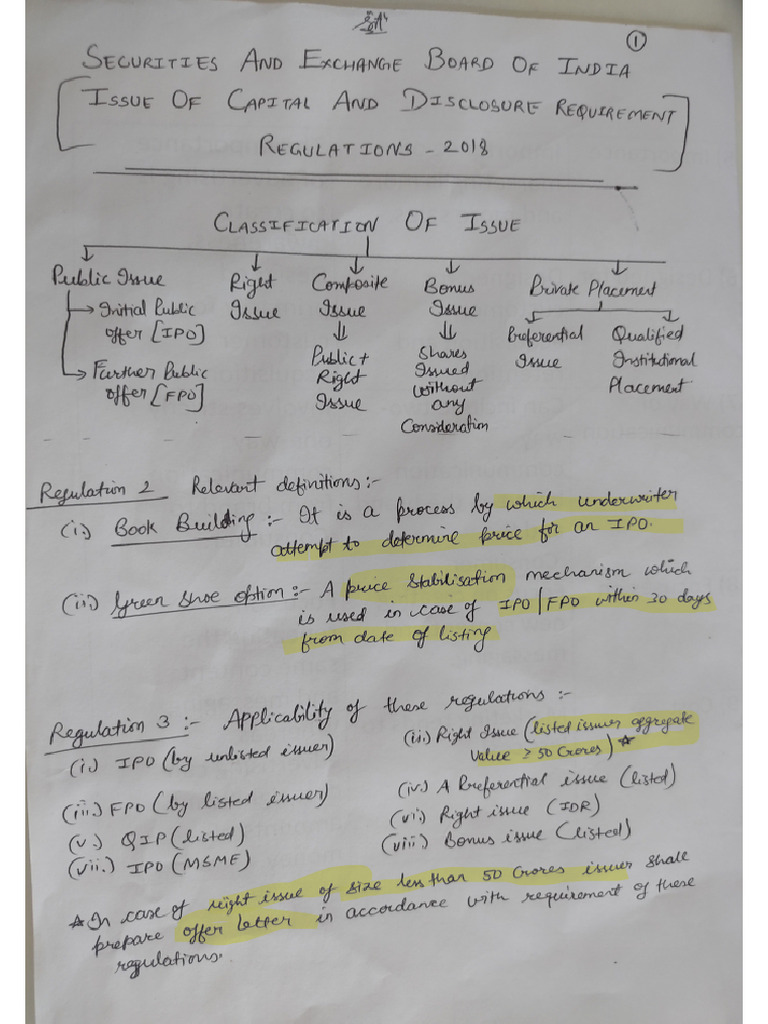 श्री
1
SECURITIES AND EXCHANGE BOARD OF INDIA
[ISSUE OF CAPITAL AND DISCLOSURE REQUIREMENT
REGULATIONS - 2018]
CLASSIFICATION OF ISSUE
Public Issue
→ Initial Public
offer [IPO]
→ Further Public
offer [FPO]
Right
Issue
Composite
Issue
⇓
Public +
Right
Issue
Bonus
Issue
⇓
Shares
Issued
without
any
Consideration
Private Placement
Preferential
Issue
Qualified
Institutional
Placement
Regulation 2 Relevant definitions:-
(i) Book Building :- It is a process by which underwriter
attempt to determine price for an IPO.
(ii) Green Shoe option :- A price stabilisation mechanism which
is used in case of IPO/FPO within 30 days
from date of listing
Regulation 3 :- Applicability of these regulations :-
(i) IPO (by unlisted issuer)
(ii) Right Issue (listed issuer aggregate
value ≥ 50 Crores) *
(iii) FPO (by listed issuer)
(iv.) A Preferential issue (listed)
(v.) QIP (listed)
(vi) Right issue (IDR)
(vii.) IPO (MSME)
(viii) Bonus issue (listed)
* In case of right issue of size less than 50 Crores issuer shall
prepare offer letter in accordance with requirement of these
regulations.